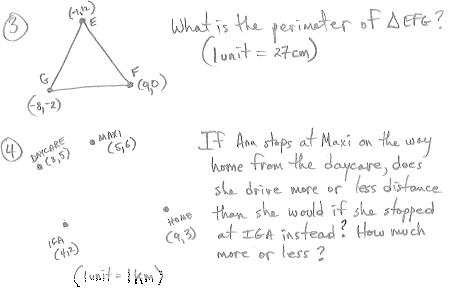 3
(-1,12)
E
What is the perimeter of △EFG?
(1unit = 27cm)
G
F
(9,0)
(-8,-2)
4
DAYCARE
(3,5)
MAXI
(5,6)
If Ana stops at Maxi on the way
home from the daycare, does
she drive more or less distance
than she would if she stopped
at IGA instead? How much
more or less?
HOME
(9,3)
IGA
(4,2)
(1unit = 1km)